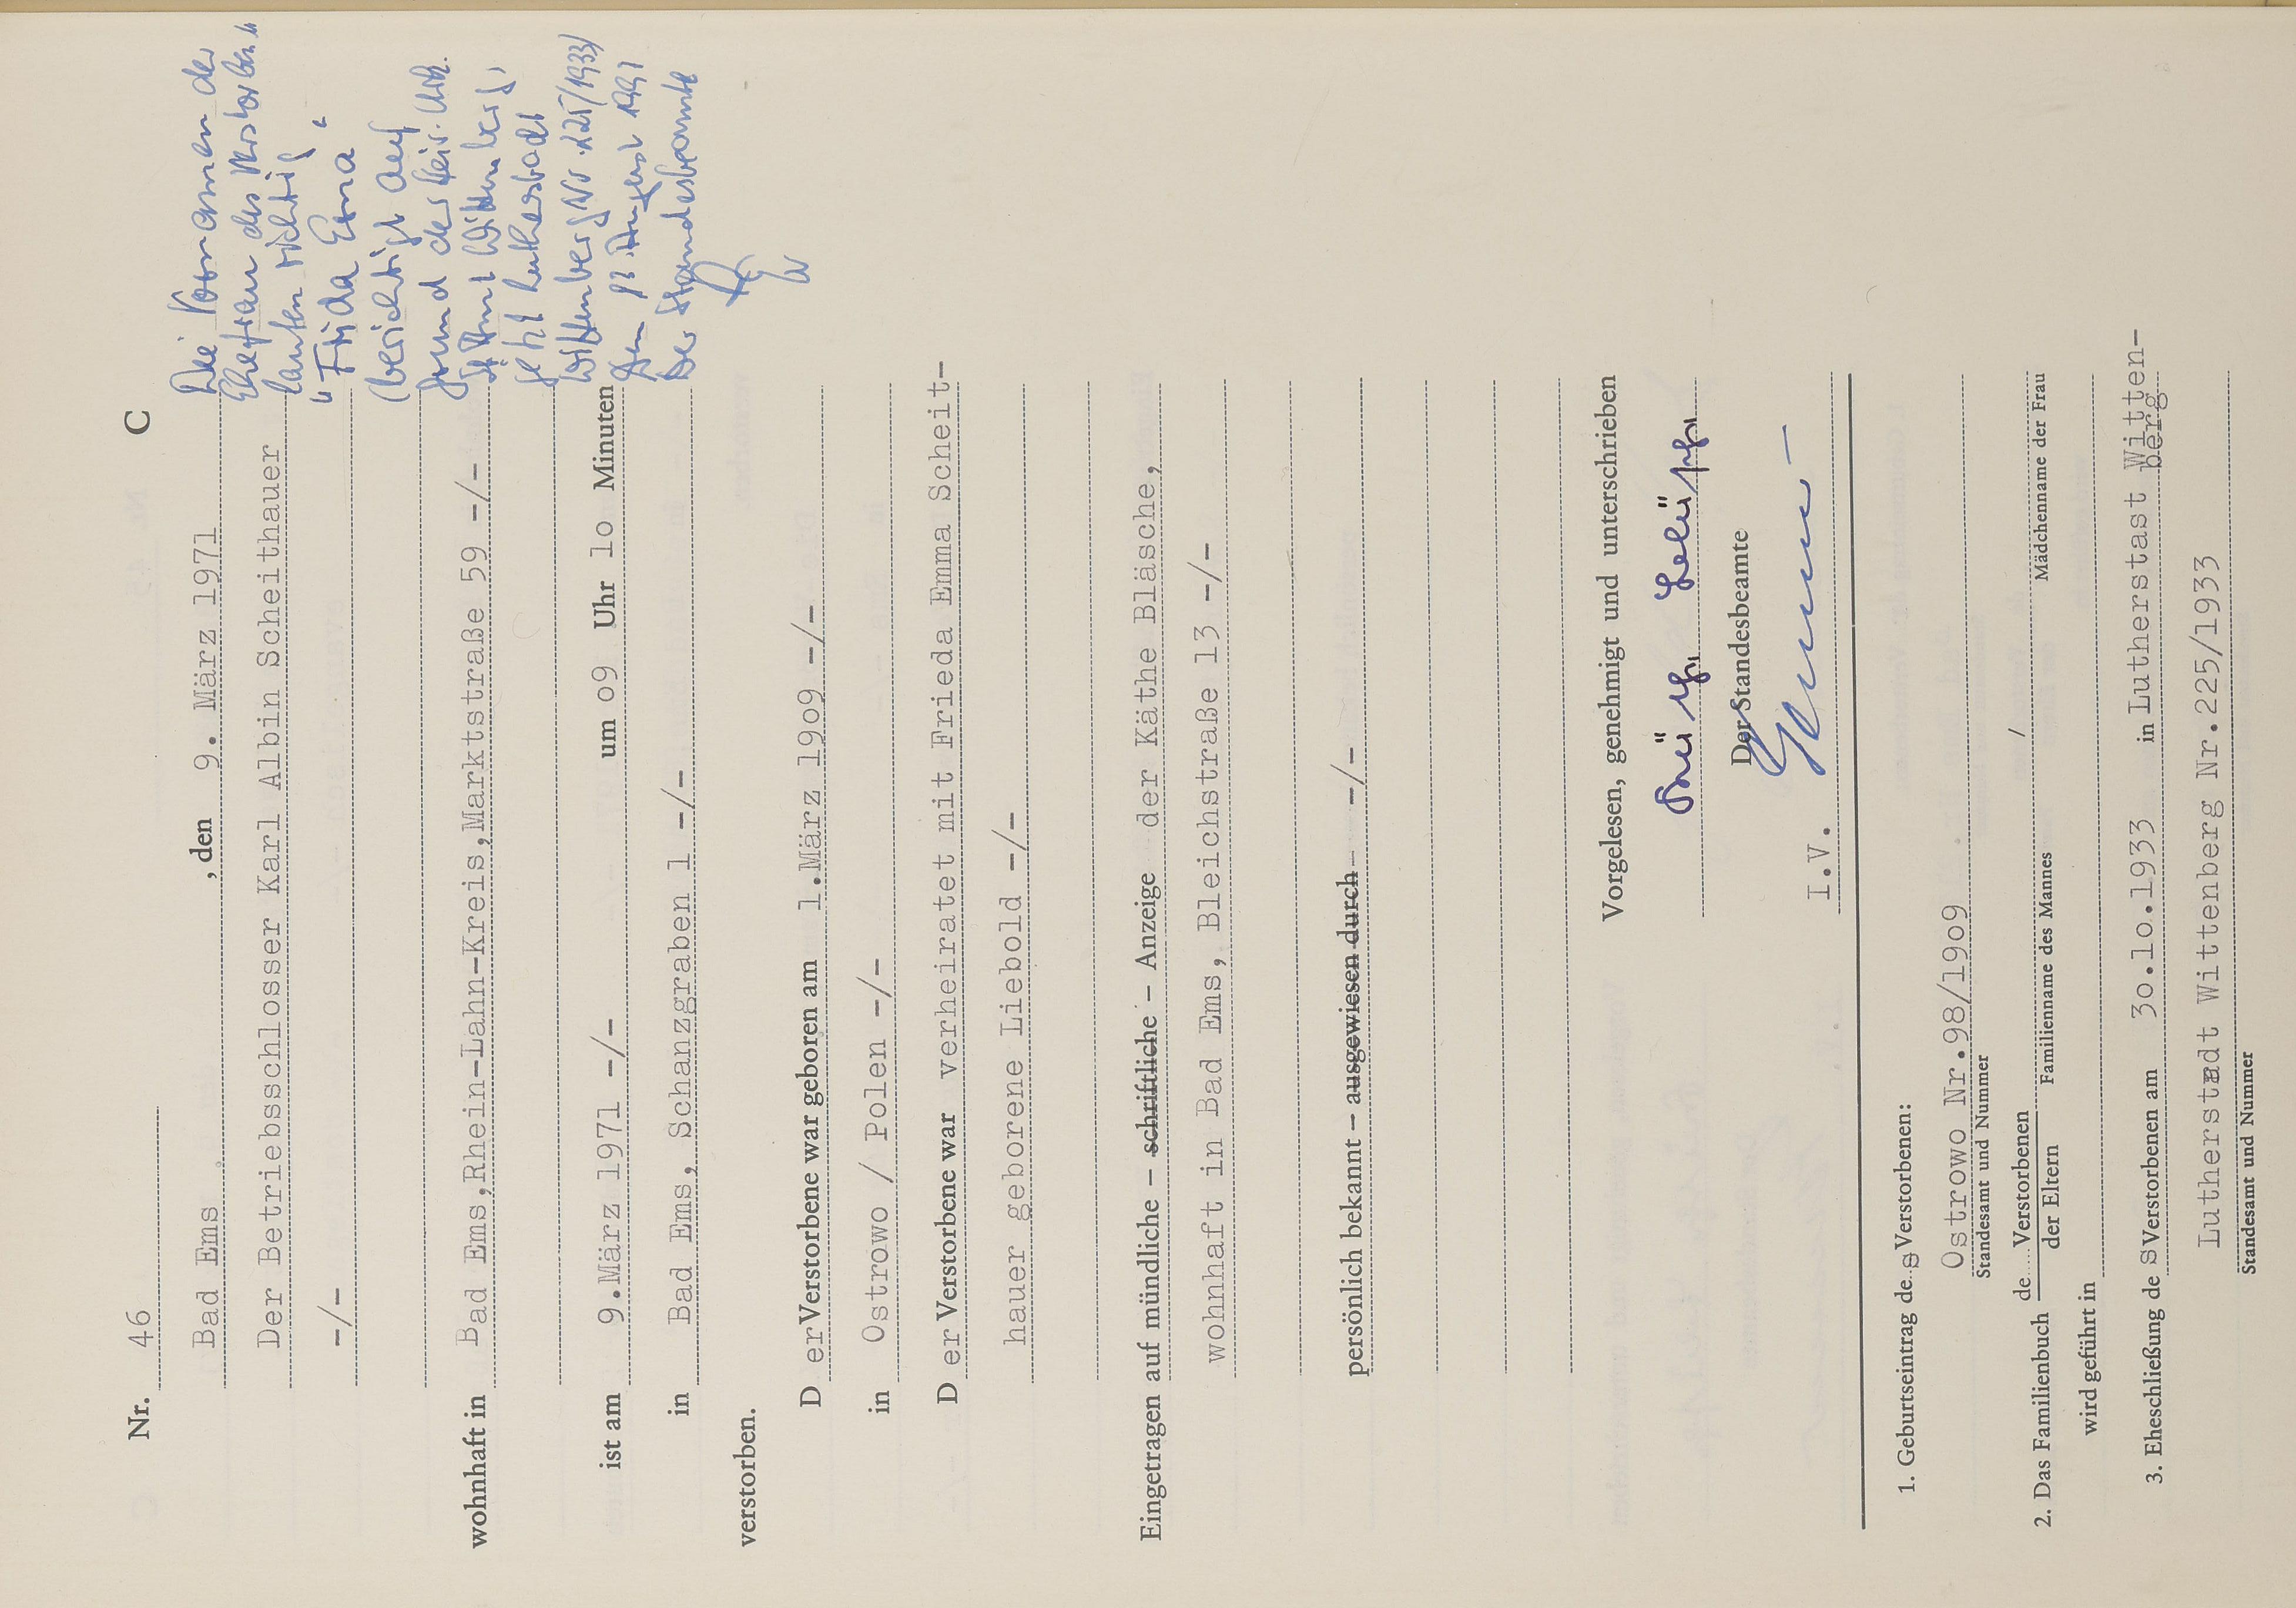 Nr. 46 C
Bad Ems , den 9. März 1971
Der Betriebsschlosser Karl Albin Scheithauer
-/-
wohnhaft in Bad Ems,Rhein-Lahn-Kreis,Marktstraße 59 -/-
ist am 9.März 1971 -/- um o9 Uhr 1o Minuten
in Bad Ems, Schanzgraben 1 -/-
verstorben.
D er Verstorbene war geboren am 1.März 19o9 -/-
in Ostrowo / Polen -/-
D er Verstorbene war verheiratet mit Frieda Emma Scheit-
hauer geborene Liebold -/-
Eingetragen auf mündliche – schriftliche – Anzeige der Käthe Bläsche,
wohnhaft in Bad Ems, Bleichstraße 13 -/-
persönlich bekannt – ausgewiesen durch -/-
Vorgelesen, genehmigt und unterschrieben
Der Standesbeamte
I.V.
1. Geburtseintrag des Verstorbenen:
Ostrowo Nr.98/19o9
Standesamt und Nummer
2. Das Familienbuch de... Verstorbenen /
der Eltern Familienname des Mannes Mädchenname der Frau
wird geführt in
3. Eheschließung des Verstorbenen am 3o.1o.1933 in Lutherstast Witten-
berg
Lutherstadt Wittenberg Nr.225/1933
Standesamt und Nummer
Die Vornamen der
Ehefrau des Verstorbenen
lauten richtig
"Frida Erna"
(berichtigt auf
Grund der Heir. Urk.
St.Amt Wittenberg,
jetzt Lutherstadt
Wittenberg Nr. 225/1933)
Den August 1991
Der Standesbeamte